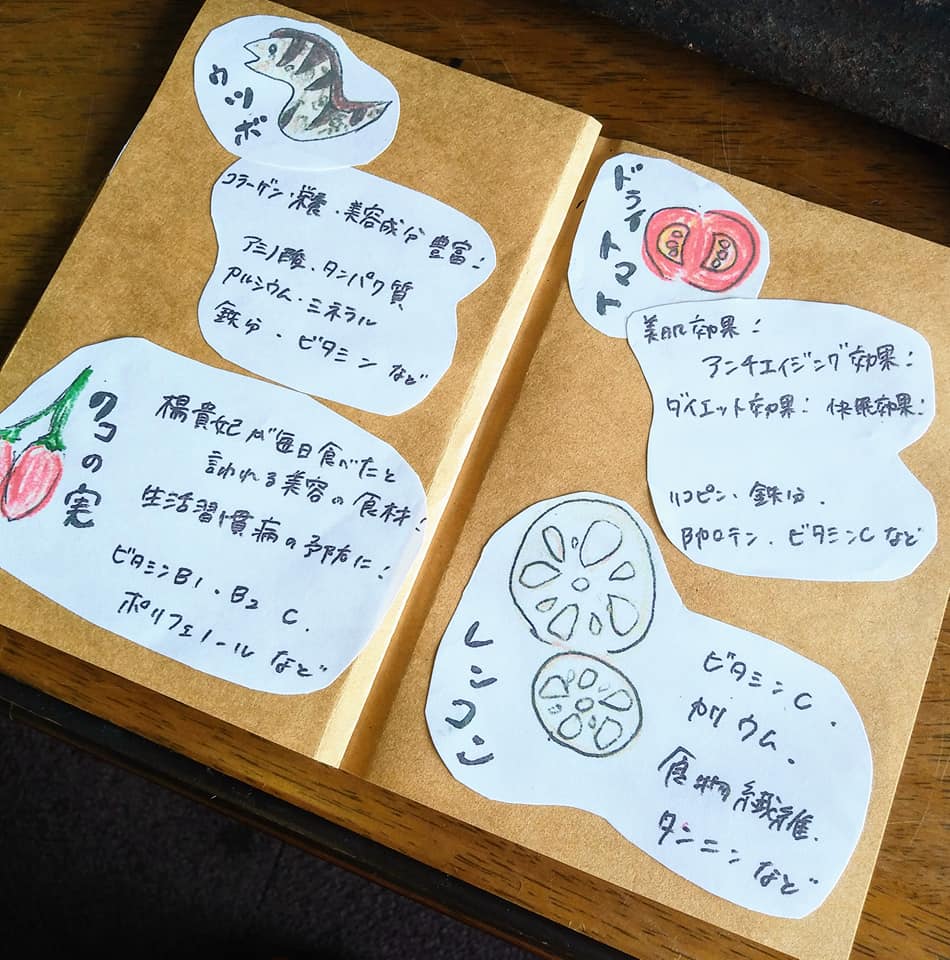 ウツボ
コラーゲン・栄養・美容成分 豊富!
アミノ酸・タンパク質
カルシウム・ミネラル
鉄分・ビタミン など
クコの実
楊貴妃が毎日食べたと
言われる美容の食材!
生活習慣病の予防に!
ビタミンB1・B2 C.
ポリフェノール など
ドライ
トマト
美肌効果!
アンチエイジング効果!
ダイエット効果! 快眠効果!
リコピン・鉄分.
βカロテン.ビタミンCなど
レンコン
ビタミンC.
カリウム.
食物繊維.
タンニンなど